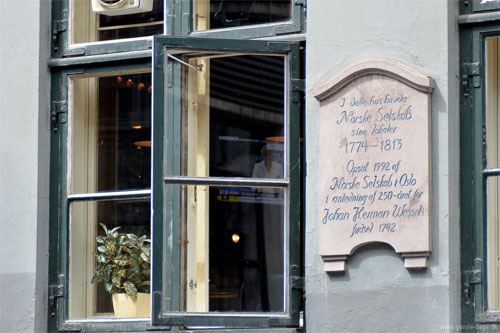 I dette hus havde
Norske Selskab
sine lokaler
1774-1813
Opsat 1992 af
Norske Selskab i Oslo
i anledning af 250-året for
Johan Herman Wessels
fødsel 1742